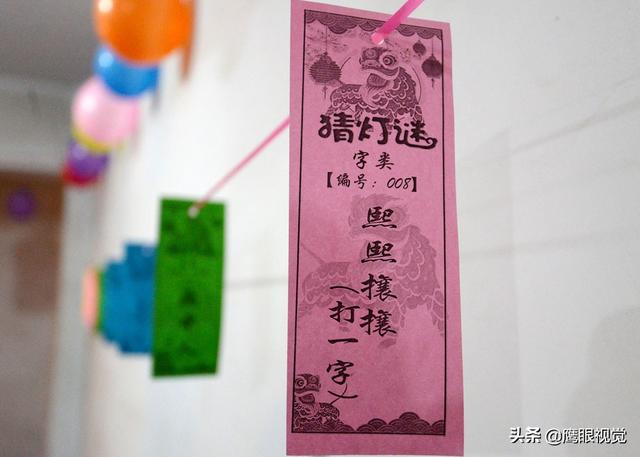 猜灯谜
字类
【编号：008】
熙熙攘攘
（打一字）
头条 @鹰眼视觉